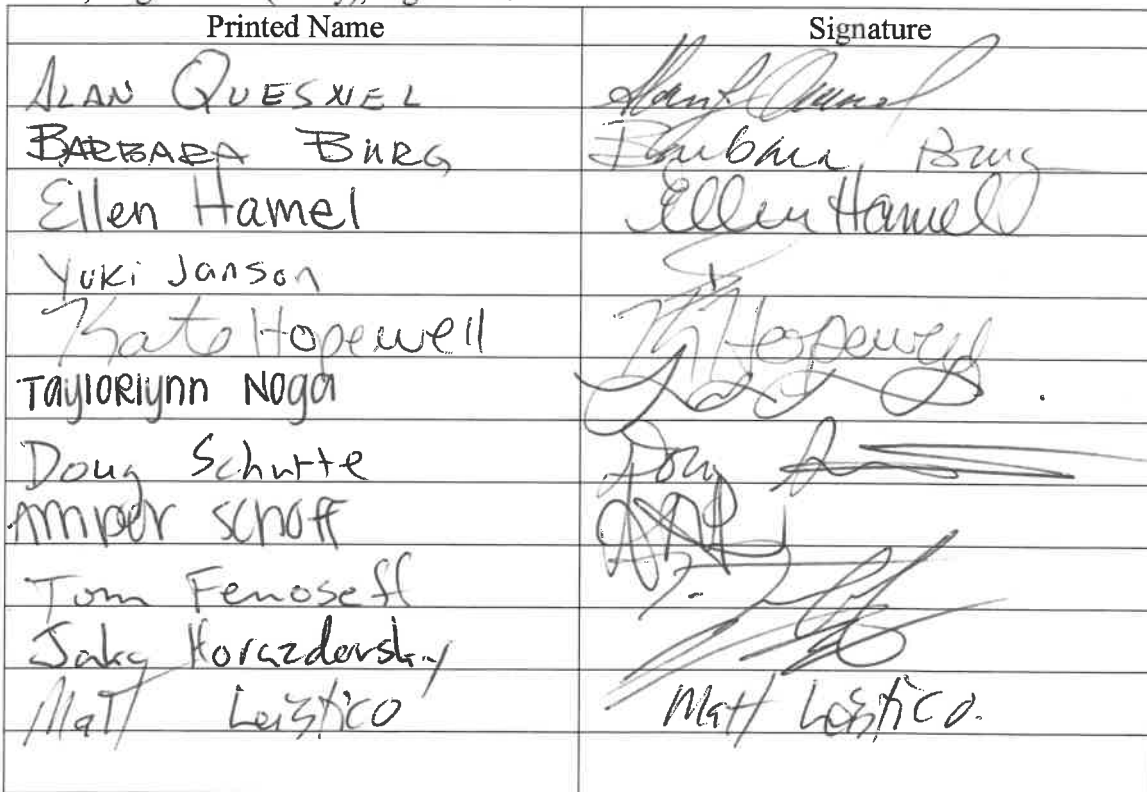 Printed Name Signature
ALAN QUESNEL
BARBARA BURG Barbara Burg
Ellen Hamel Ellen Hamel
Yuki Janson
Kate Hopewell K Hopewell
Taylorlynn Noga
Doug Schutte Doug
Amber Schoff
Tom Fenoseff
Jake Horazdovsky
Matt Leistico Matt Leistico.